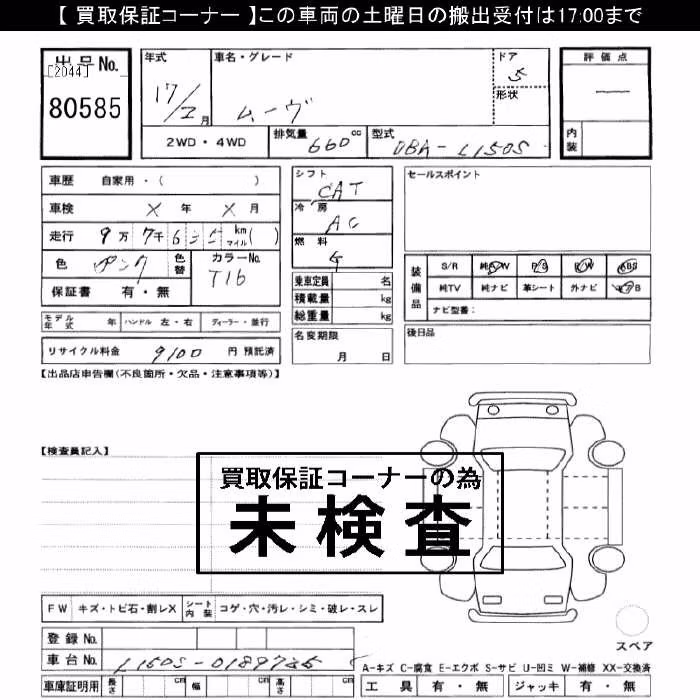 【 買取保証コーナー 】この車両の土曜日の搬出受付は17:00まで
出品No.
[2044]
80585
年式
17/2月
車名・グレード
ムーヴ
ドア
5
形状
評価点
内装
2WD・4WD
排気量 660 cc
型式 DBA-L150S
車歴 自家用・( )
車検 X 年 X 月
走行 9万 7千 km マイル( )
色 ピンク
色替
カラーNo.
T16
保証書 有・無
シフト
CAT
冷房
AC
燃料
G
乗車定員 名
積載量 kg
総重量 kg
セールスポイント
装備品
S/R 純AW P/S P/W ABS
純TV 純ナビ 革シート 外ナビ エアB
ナビ型番:
モデル年式 年 ハンドル 左・右 ディーラー・並行
名変期限
月 日
後日品
リサイクル料金 9100 円 預託済
【出品店申告欄(不良箇所・欠品・注意事項等)】
【検査員記入】
買取保証コーナーの為
未検査
FW キズ・トビ石・割レX
シート内装 コゲ・穴・汚レ・シミ・破レ・スレ
スペア
登録No.
車台No. L150S-0189735
A-キズ C-腐食 E-エクボ S-サビ U-凹ミ W-補修 XX-交換済
車庫証明用 長さ cm 幅 cm 高さ cm
工具 有・無 ジャッキ 有・無